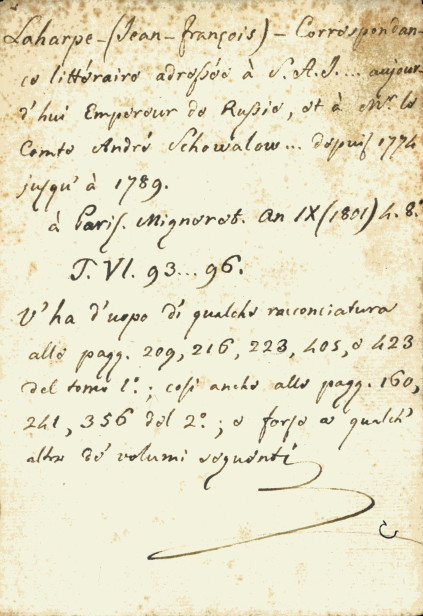 Laharpe-(Jean-François)-Correspondan-
ce littéraire adressée à S.A.I... aujour-
d'hui Empereur de Russie, et à Mr. le
Comte André Schowalow... depuis 1774
jusqu'à 1789.
à Paris. Migneret. An IX (1801) 4. 8.º
T. VI. 93...96.
V'ha d'uopo di qualche racconciatura
alle pagg. 209, 216, 223, 405, e 423
del tomo 1.º; così anche alle pagg. 160,
241, 356 del 2.º; e forse a qualch'
altra de' volumi seguenti